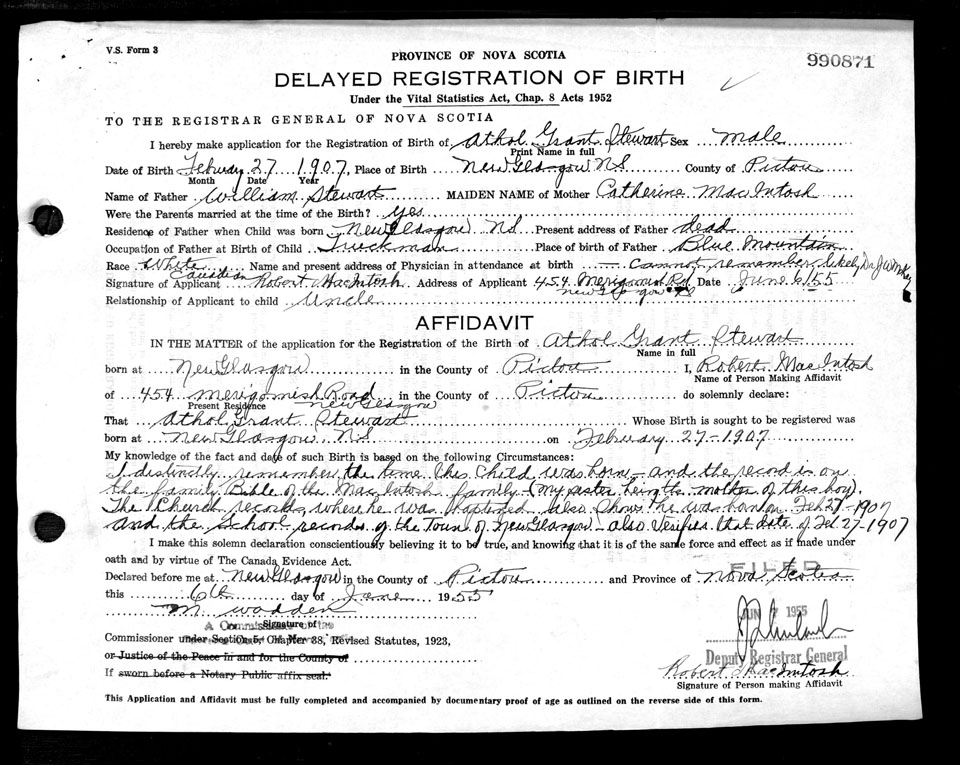 V.S. Form 3
PROVINCE OF NOVA SCOTIA
990871
DELAYED REGISTRATION OF BIRTH
Under the Vital Statistics Act, Chap. 8 Acts 1952
TO THE REGISTRAR GENERAL OF NOVA SCOTIA
I hereby make application for the Registration of Birth of Athol Grant Stewart Sex Male
Print Name in full
Date of Birth February 27 1907, Place of Birth New Glasgow N.S. County of Pictou
Month Date Year
Name of Father William Stewart MAIDEN NAME of Mother Catherine MacIntosh
Were the Parents married at the time of the Birth? yes
Residence of Father when Child was born New Glasgow NS Present address of Father dead
Occupation of Father at Birth of Child Truckman Place of birth of Father Blue Mountain
Race White Name and present address of Physician in attendance at birth - cannot remember likely Dr J W
Canadian
Signature of Applicant Robert MacIntosh Address of Applicant 454 Merigomish Rd Date June 6/55
New Glasgow NS
Relationship of Applicant to child Uncle
AFFIDAVIT
IN THE MATTER of the application for the Registration of the Birth of Athol Grant Stewart
Name in full
born at New Glasgow in the County of Pictou I, Robert MacIntosh
Name of Person Making Affidavit
of 454 Merigomish Road in the County of Pictou do solemnly declare:
Present Residence New Glasgow
That Athol Grant Stewart Whose Birth is sought to be registered was
born at New Glasgow NS on February 27-1907
My knowledge of the fact and date of such Birth is based on the following Circumstances:
I distinctly remember the time this child was born - and the record is on
the family Bible of the MacIntosh family - (my sister being the mother of this boy).
The Church records, where he was Baptized also show he was born on Feb 27-1907
and the School records of the Town of New Glasgow - also Verifies that date of Feb 27-1907
I make this solemn declaration conscientiously believing it to be true, and knowing that it is of the same force and effect as if made under
oath and by virtue of The Canada Evidence Act.
FILED
Declared before me at New Glasgow in the County of Pictou and Province of Nova Scotia
this 6th day of June 1955
JUN 7 1955
M Wadden
Signature of
A Commissioner of the
Commissioner under Section 5, Chapter 38, Revised Statutes, 1923,
or Justice of the Peace in and for the County of
Deputy Registrar General
If sworn before a Notary Public affix seal.
Robert MacIntosh
Signature of Person making Affidavit
This Application and Affidavit must be fully completed and accompanied by documentary proof of age as outlined on the reverse side of this form.